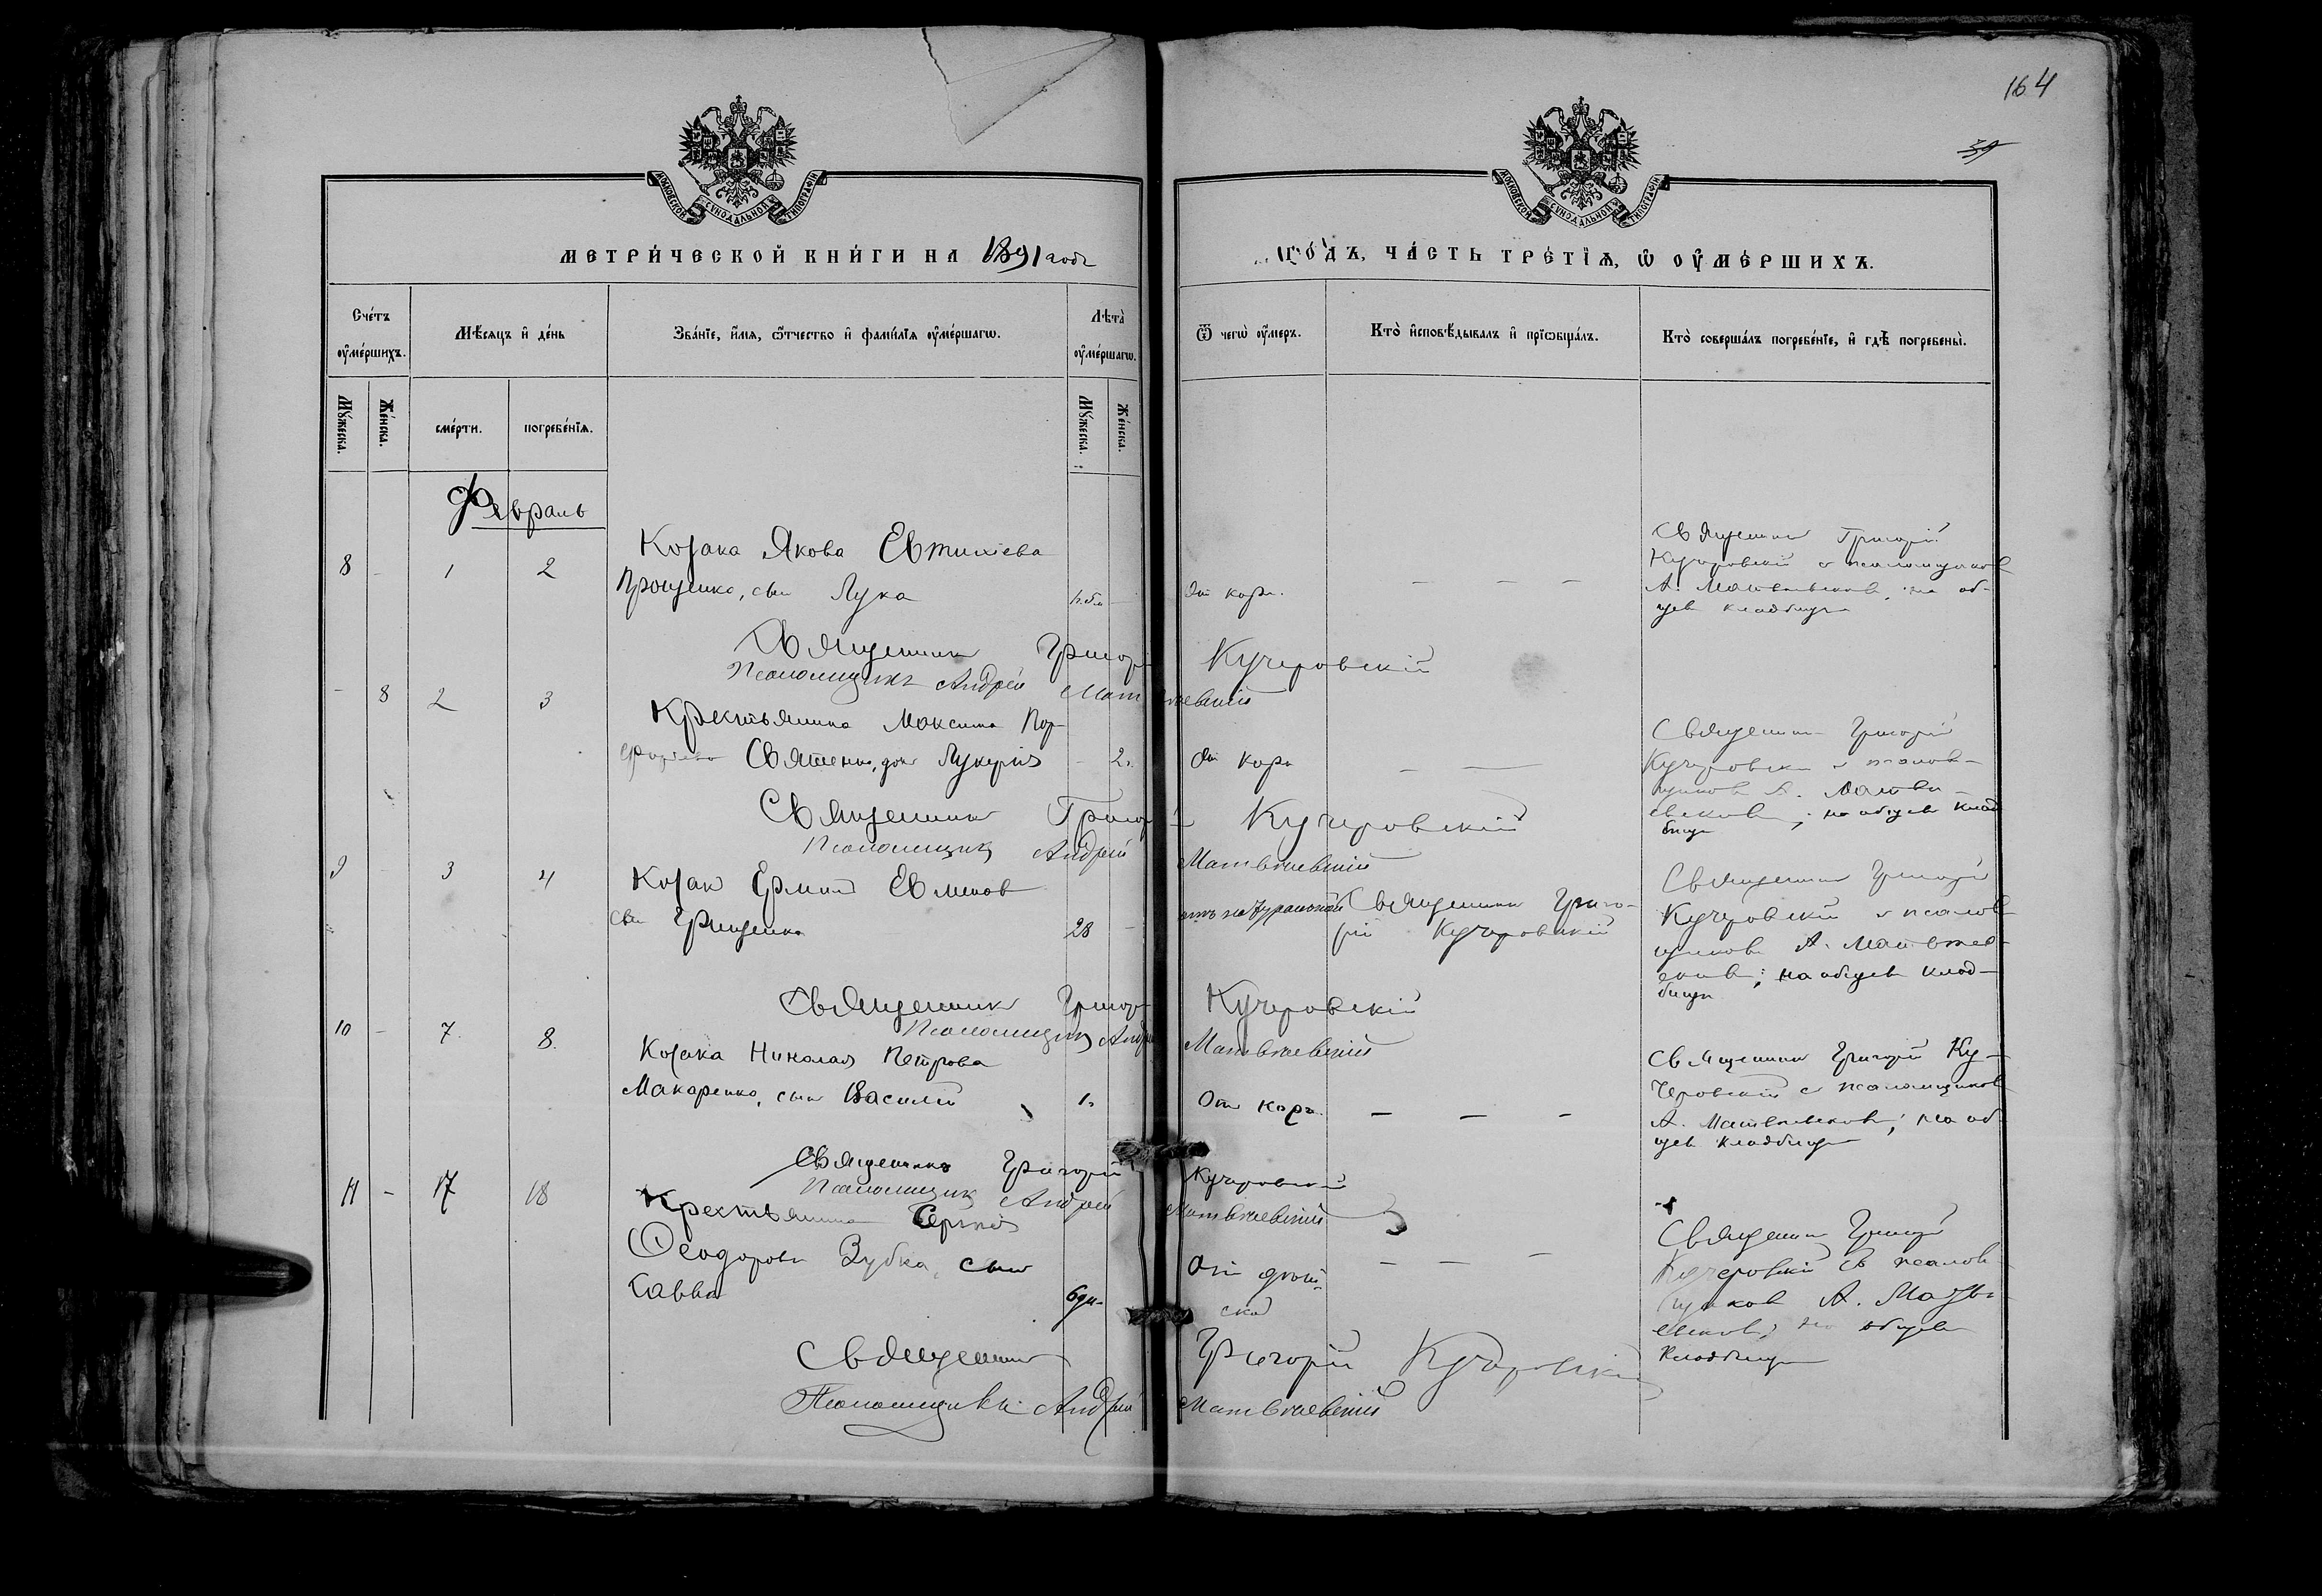 164
39
МОСКОВСКОЙ СѴНОДАЛЬНОЙ ТИПОГРАФІИ
МОСКОВСКОЙ СѴНОДАЛЬНОЙ ТИПОГРАФІИ
МЕТРИ́ЧЕСКОЙ КНИ́ГИ НА 1891 годъ
ГО́ДЪ, ЧА́СТЬ ТРЕ́ТІѦ, Ѡ ОУ҆МЕ́РШИХЪ.
Сче́тъ оу҆ме́ршихъ.
Мѣ́сяцъ и҆ де́нь
Зва́нїе, и҆́мѧ, ѿ́тчество и҆ фами́лїѧ оу҆ме́ршагѡ.
Лѣ́та оу҆ме́ршагѡ.
Ѿ чегѡ̀ оу҆́меръ.
Кто̀ и҆сповѣ́дывалъ и҆ прїѡбща́лъ.
Кто̀ соверша́лъ погребе́нїе, и҆ гдѣ̀ погребены̀.
Мꙋ́жеска.
Же́нска.
сме́рти.
погребе́нїѧ.
Мꙋ́жеска.
Же́нска.
Февраль
8 - 1 2
Козака Якова Евтихіева
Проценко, сын Лука
От кори.
- - -
Священник Григорій
Кучеровскій с псаломщиком
А. Матвѣевским, на об-
щем кладбищѣ
Священник Григорій Кучеровскій
Псаломщикъ Андрей Матвѣевскій
- 8 2 3
Крестьянина Максима Пор-
фиріева Святенко, дочь Лукерія - 2.
От кори
Священник Григорій
Кучеровскій с псалом-
щиком А. Матвѣ-
евским; на общем клад
бищѣ
Священник Григорій Кучеровскій
Псаломщик Андрей Матвѣевскій
9 - 3 4
Козак Евменов
сын Грищенко 28
от натуральной
Священник Григо-
рій Кучеровскій
Священник Григорій
Кучеровскій с псалом
щиком А. Матвѣев-
ским; на общем клад-
бищѣ
Священник Григорій Кучеровскій
Псаломщик Андрей Матвѣевскій
10 - 7 8.
Козака Николая Петрова
Макаренко, сын Василій 1.
От кори. - - -
Священник Григорій Ку-
черовскій с псаломщиком
А. Матвѣевским; на об-
щем кладбищѣ
Священникъ Григорій Кучеровскій
Псаломщик Андрей Матвѣевскій
11 - 17 18
Крестьянина Сергія
Ѳеодорова Зубка, сын
Савва 6 дн.
От дѣт-
ской
- - -
Священник Григорій
Кучеровскій с псалом
щиком А. Матвѣ-
евским; на общем
кладбищѣ
Священник Григорій Кучеровскій
Псаломщикъ Андрей Матвѣевскій